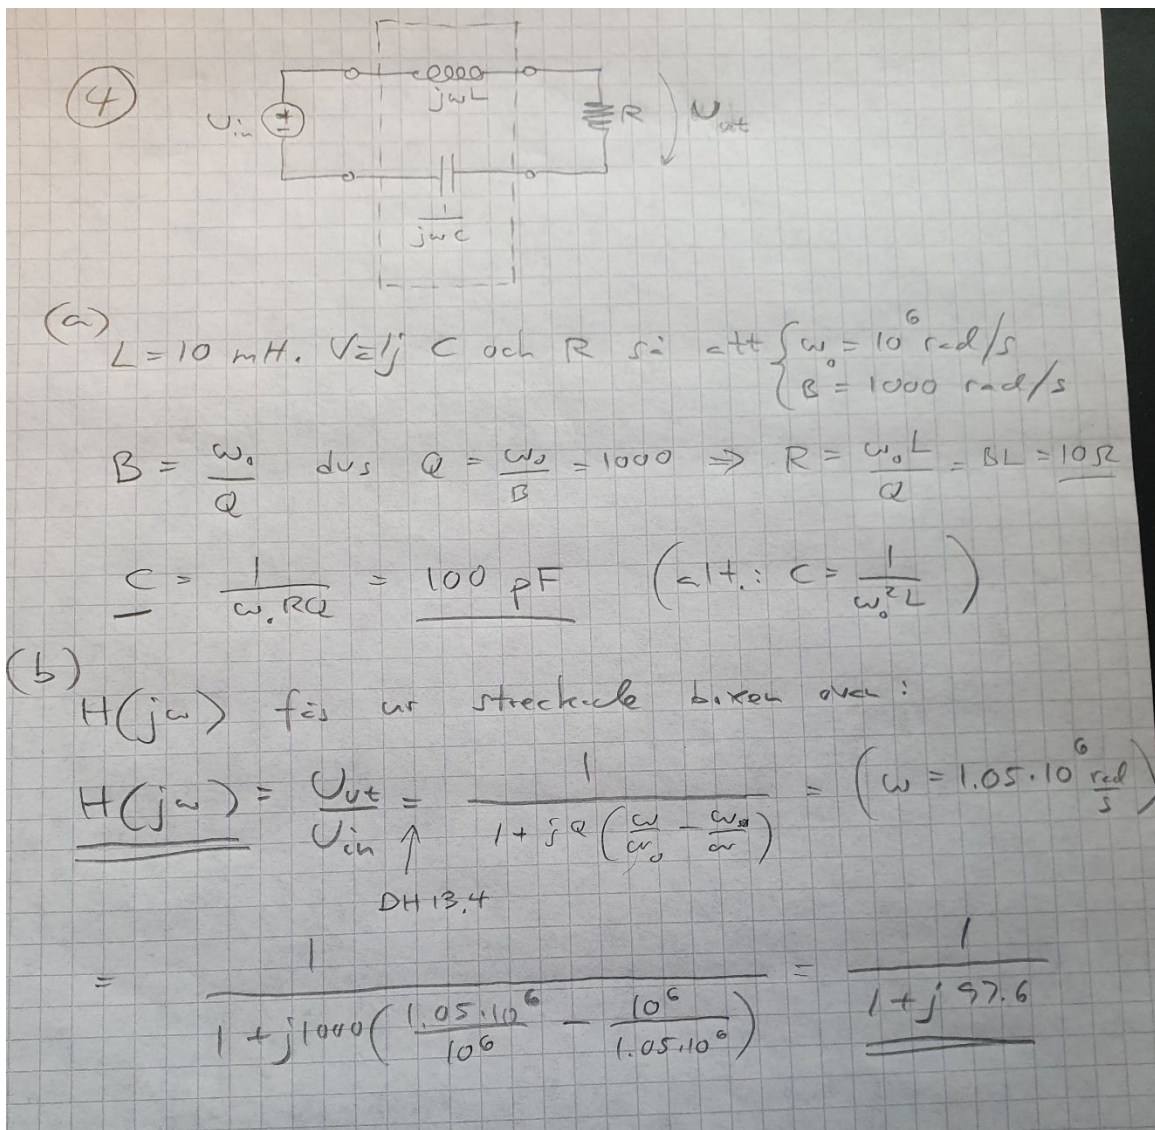 4
U_in
jωL
R
U_ut
1/(jωC)
(a)
L = 10 mH. Välj C och R så att { ω₀ = 10⁶ rad/s
{ B = 1000 rad/s
B = ω₀/Q dvs Q = ω₀/B = 1000 ⇒ R = ω₀L/Q = BL = 10Ω
C = 1/(ω₀RQ) = 100 pF (alt.: C = 1/(ω₀²L))
(b)
H(jω) fås ur streckade boxen ovan:
H(jω) = U_ut/U_in = 1/(1 + jQ(ω/ω₀ - ω₀/ω)) = (ω = 1.05·10⁶ rad/s)
DH 13.4
= 1/(1 + j1000(1.05·10⁶/10⁶ - 10⁶/1.05·10⁶)) = 1/(1 + j 97.6)